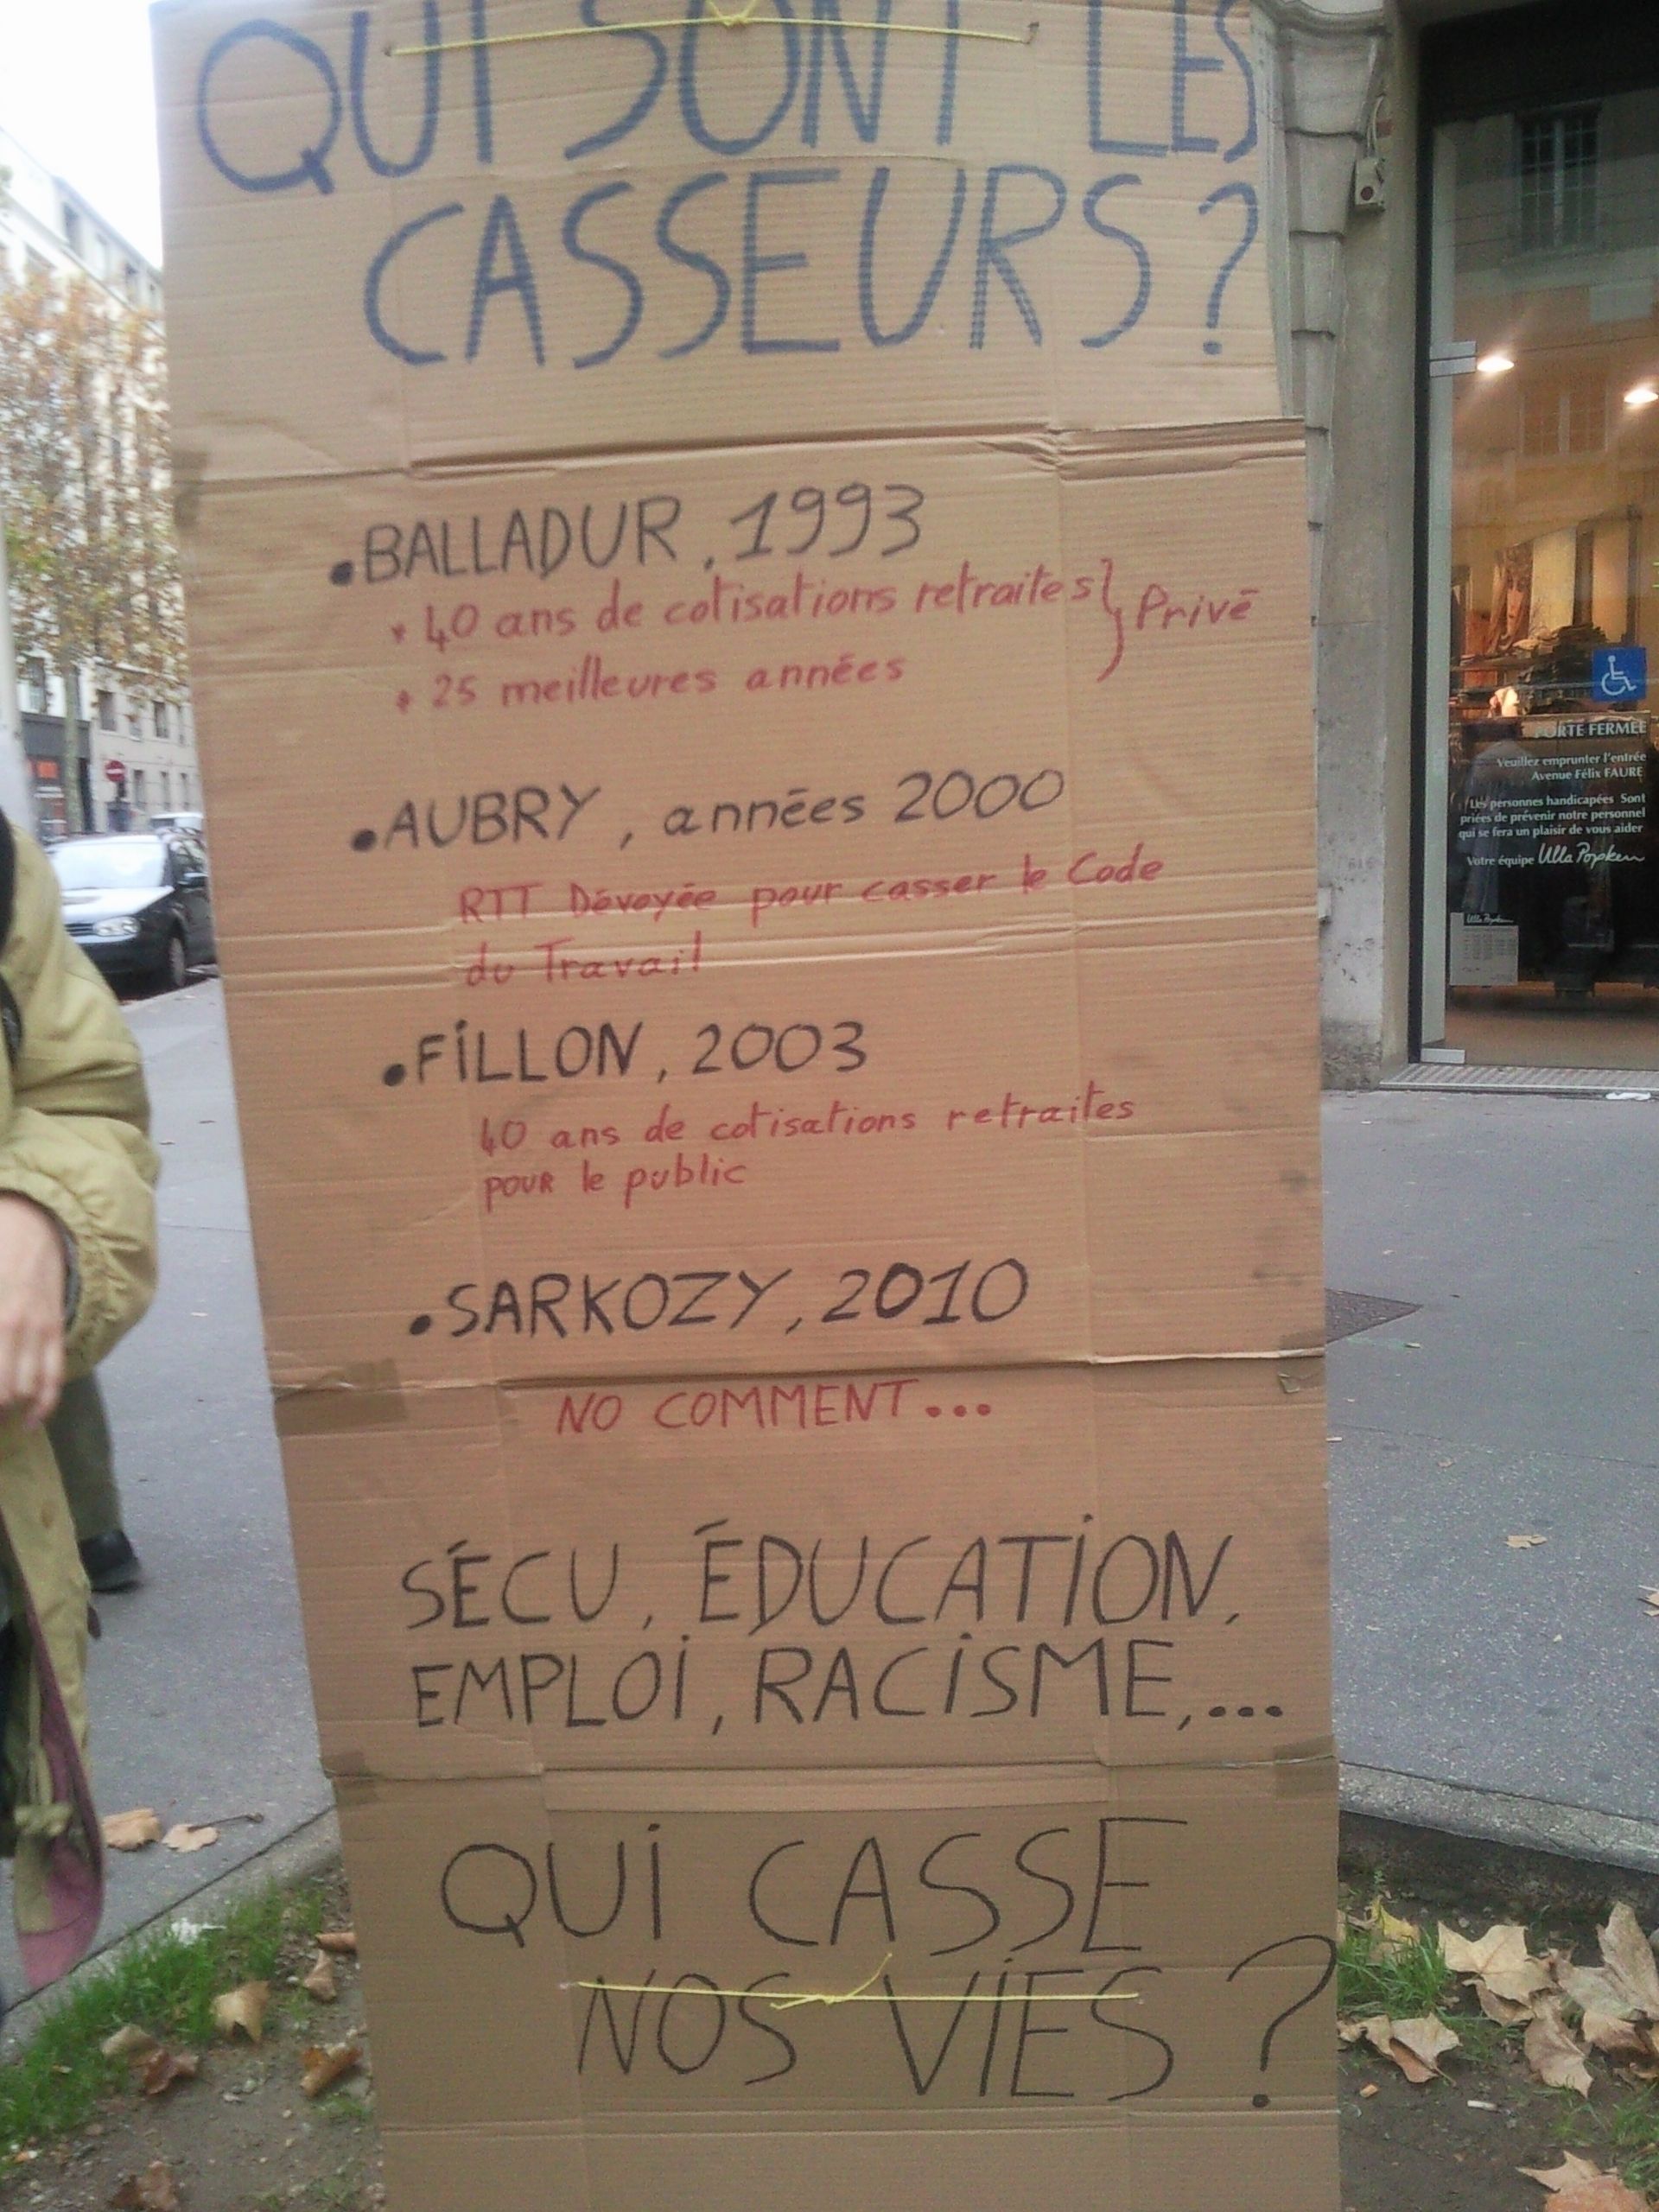 QUI SONT LES
CASSEURS ?
• BALLADUR, 1993
* 40 ans de cotisations retraites } Privé
* 25 meilleures années
• AUBRY, années 2000
RTT Dévoyée pour casser le Code
du Travail
• FiLLON, 2003
40 ans de cotisations retraites
pour le public
• SARKOZY, 2010
NO COMMENT...
SÉCU, ÉDUCATiON,
EMPLOi, RACiSME,...
QUi CASSE
NOS ViES ?
PORTE FERMÉE
Veuillez emprunter l'entrée
Avenue Félix FAURE
Les personnes handicapées Sont
priées de prévenir notre personnel
qui se fera un plaisir de vous aider
Votre équipe Ulla Popken
Ulla Popken